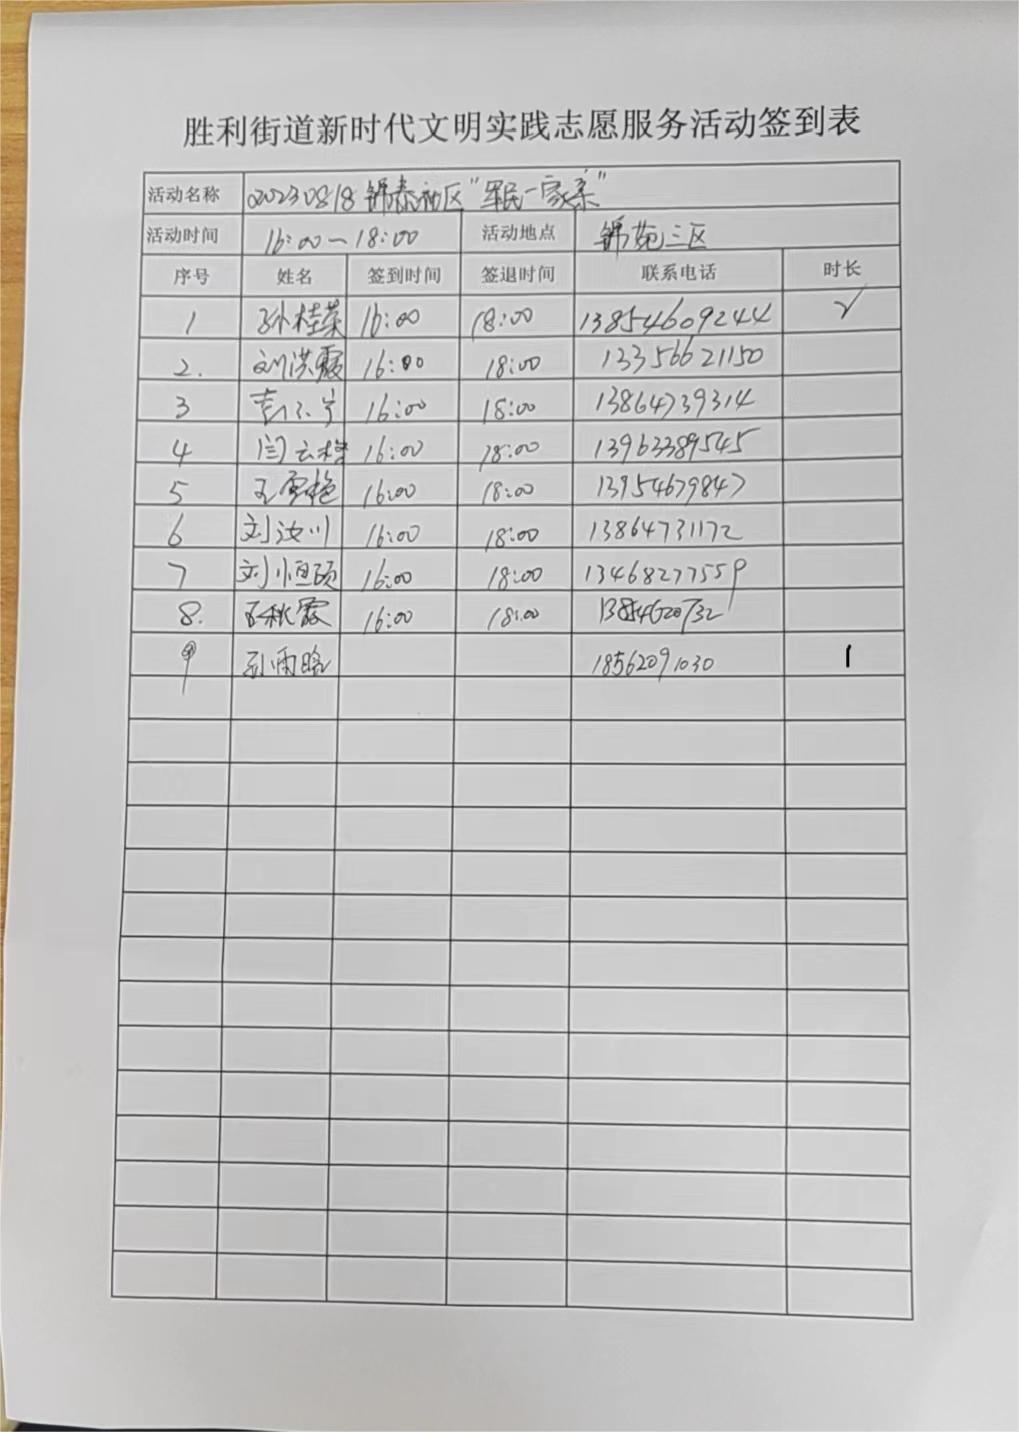 胜利街道新时代文明实践志愿服务活动签到表
活动名称 20230818 锦泰社区"军民一家亲"
活动时间 16:00-18:00 活动地点 锦苑三区
序号 姓名 签到时间 签退时间 联系电话 时长
1 孙桂荣 16:00 18:00 13854609244 √
2. 刘洪霞 16:00 18:00 13356621150
3 16:00 18:00 13864739314
4 闫云 16:00 18:00 13963389545
5 王雪艳 16:00 18:00 13954679847
6 刘汝川 16:00 18:00 13864731172
7 刘恒硕 16:00 18:00 13468277559
8. 王秋霞 16:00 18:00 13854620732
9 孙雨晗 18562091030 1